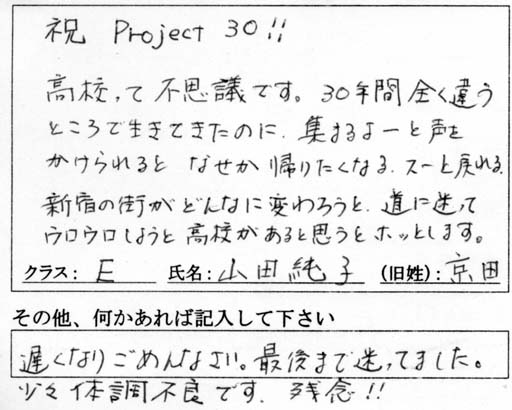 祝 Project 30!!
高校って不思議です。30年間全く違う
ところで生きてきたのに、集まるよーと声を
かけられるとなぜか帰りたくなる、スーと戻れる。
新宿の街がどんなに変わろうと、道に迷って
ウロウロしようと高校があると思うとホッとします。
クラス: E 氏名: 山田純子 (旧姓): 京田
その他、何かあれば記入して下さい
遅くなりごめんなさい。最後まで迷ってました。
少々体調不良です。残念!!